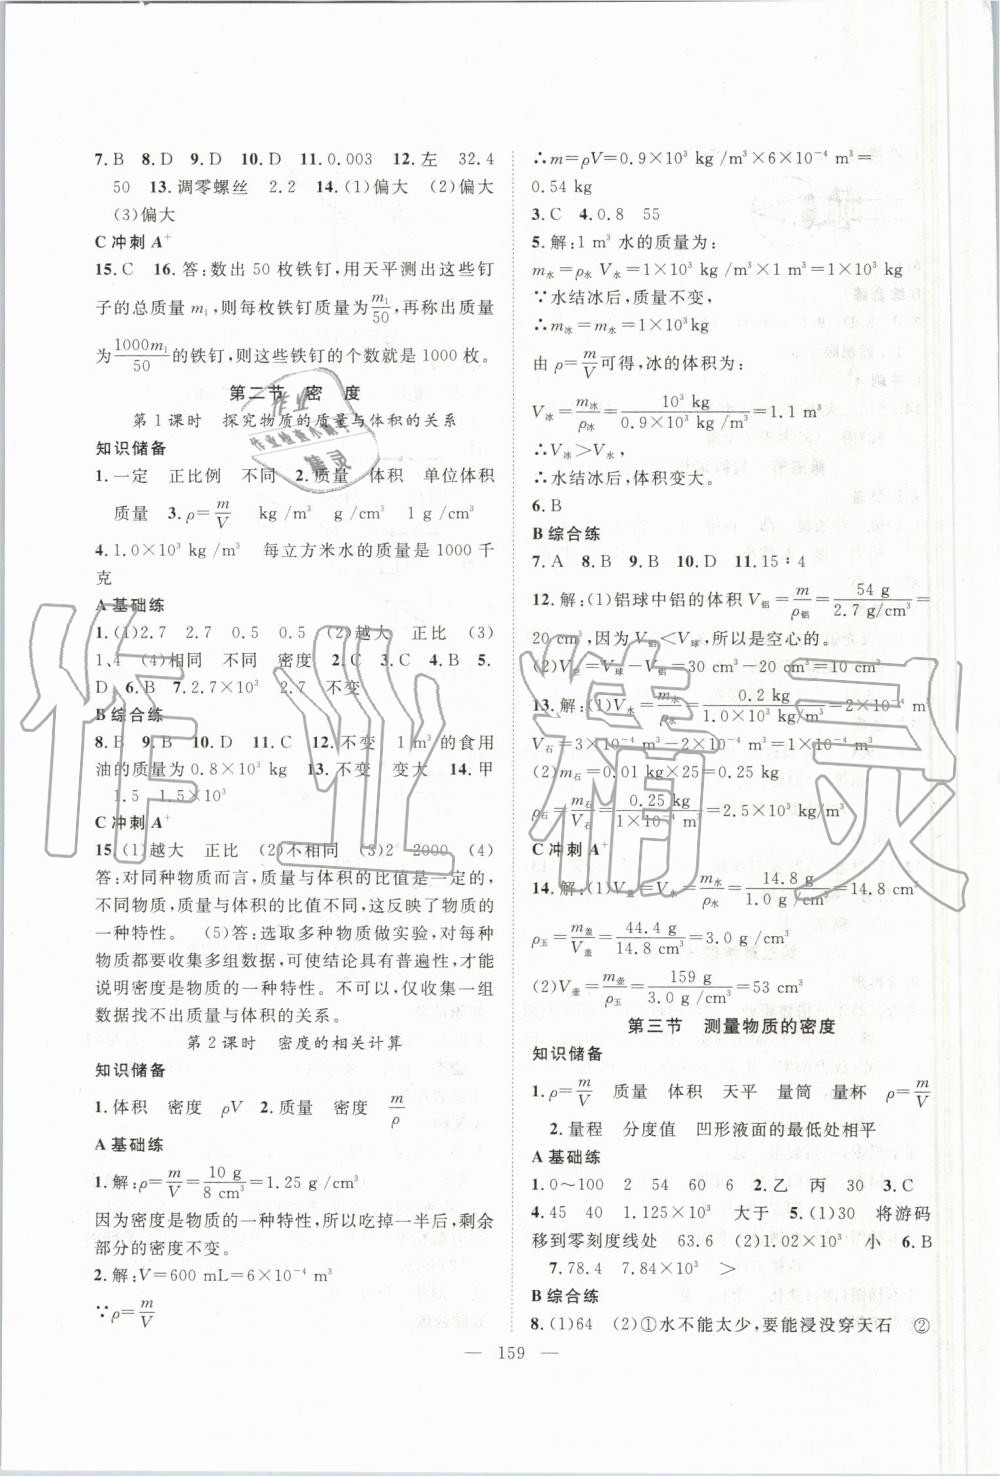 7.B 8.D 9.D 10.D 11.0.003 12.左 32.4
50 13.调零螺丝 2.2 14.(1)偏大 (2)偏大
(3)偏大
C 冲刺 A⁺
15.C 16.答:数出 50 枚铁钉,用天平测出这些钉
子的总质量 m₁,则每枚铁钉质量为 m₁/50,再称出质量
为 1000m₁/50 的铁钉,则这些铁钉的个数就是 1000 枚。
第二节 密 度
第 1 课时 探究物质的质量与体积的关系
知识储备
1.一定 正比例 不同 2.质量 体积 单位体积
质量 3.ρ=m/V kg/m³ g/cm³ 1 1
4.1.0×10³ kg/m³ 每立方米水的质量是 1000 千
克
A 基础练
1.(1)2.7 2.7 0.5 0.5 (2)越大 正比 (3)
1、4 (4)相同 不同 密度 2.C 3.C 4.B 5.
D 6.B 7.2.7×10³ 2.7 不变
B 综合练
8.B 9.B 10.D 11.C 12.不变 1 m³ 的食用
油的质量为 0.8×10³ kg 13.不变 变大 14.甲
1.5 1.5×10³
C 冲刺 A⁺
15.(1)越大 正比 (2)不相同 (3)2 2000 (4)
答:对同种物质而言,质量与体积的比值是一定的,
不同物质,质量与体积的比值不同,这反映了物质的
一种特性。 (5)答:选取多种物质做实验,对每种
物质都要收集多组数据,可使结论具有普遍性,才能
说明密度是物质的一种特性。不可以,仅收集一组
数据找不出质量与体积的关系。
第 2 课时 密度的相关计算
知识储备
1.体积 密度 ρV 2.质量 密度 m/ρ
A 基础练
1.解:ρ=m/V=10 g/8 cm³=1.25 g/cm³
因为密度是物质的一种特性,所以吃掉一半后,剩余
部分的密度不变。
2.解:V=600 mL=6×10⁻⁴ m³
∵ρ=m/V
∴m=ρV=0.9×10³ kg/m³×6×10⁻⁴ m³=
0.54 kg
3.C 4.0.8 55
5.解:1 m³ 水的质量为:
m水=ρ水 V水=1×10³ kg/m³×1 m³=1×10³ kg
∵水结冰后,质量不变,
∴m冰=m水=1×10³ kg
由 ρ=m/V可得,冰的体积为:
V冰=m冰/ρ冰=10³ kg/0.9×10³ kg/m³=1.1 m³
∴V冰>V水,
∴水结冰后,体积变大。
6.B
B 综合练
7.A 8.B 9.B 10.D 11.15∶4
12.解:(1)铝球中铝的体积 V铝=m/ρ铝=54 g/2.7 g/cm³=
20 cm³,因为 V铝<V球,所以是空心的。
(2)V空=V球-V铝=30 cm³-20 cm³=10 cm³
13.解:(1)V水=m水/ρ水=0.2 kg/1.0×10³ kg/m³=2×10⁻⁴ m³
V石=3×10⁻⁴ m³-2×10⁻⁴ m³=1×10⁻⁴ m³
(2)m石=0.01 kg×25=0.25 kg
ρ石=m石/V石=0.25 kg/1×10⁻⁴ m³=2.5×10³ kg/m³
C 冲刺 A⁺
14.解:(1)V盖=V水=m水/ρ水=14.8 g/1.0 g/cm³=14.8 cm³
ρ玉=m盖/V盖=44.4 g/14.8 cm³=3.0 g/cm³
(2)V壶=m壶/ρ玉=159 g/3.0 g/cm³=53 cm³
第三节 测量物质的密度
知识储备
1.ρ=m/V 质量 体积 天平 量筒 量杯 ρ=m/V
2.量程 分度值 凹形液面的最低处相平
A 基础练
1.0~100 2 54 60 6 2.乙 丙 30 3.C
4.45 40 1.125×10³ 大于 5.(1)30 将游码
移到零刻度线处 63.6 (2)1.02×10³ 小 6.B
7.78.4 7.84×10³ >
B 综合练
8.(1)64 (2)①水不能太少,要能浸没穿天石 ②
— 159 —
作业精灵
作业
作业检查小助手
精灵